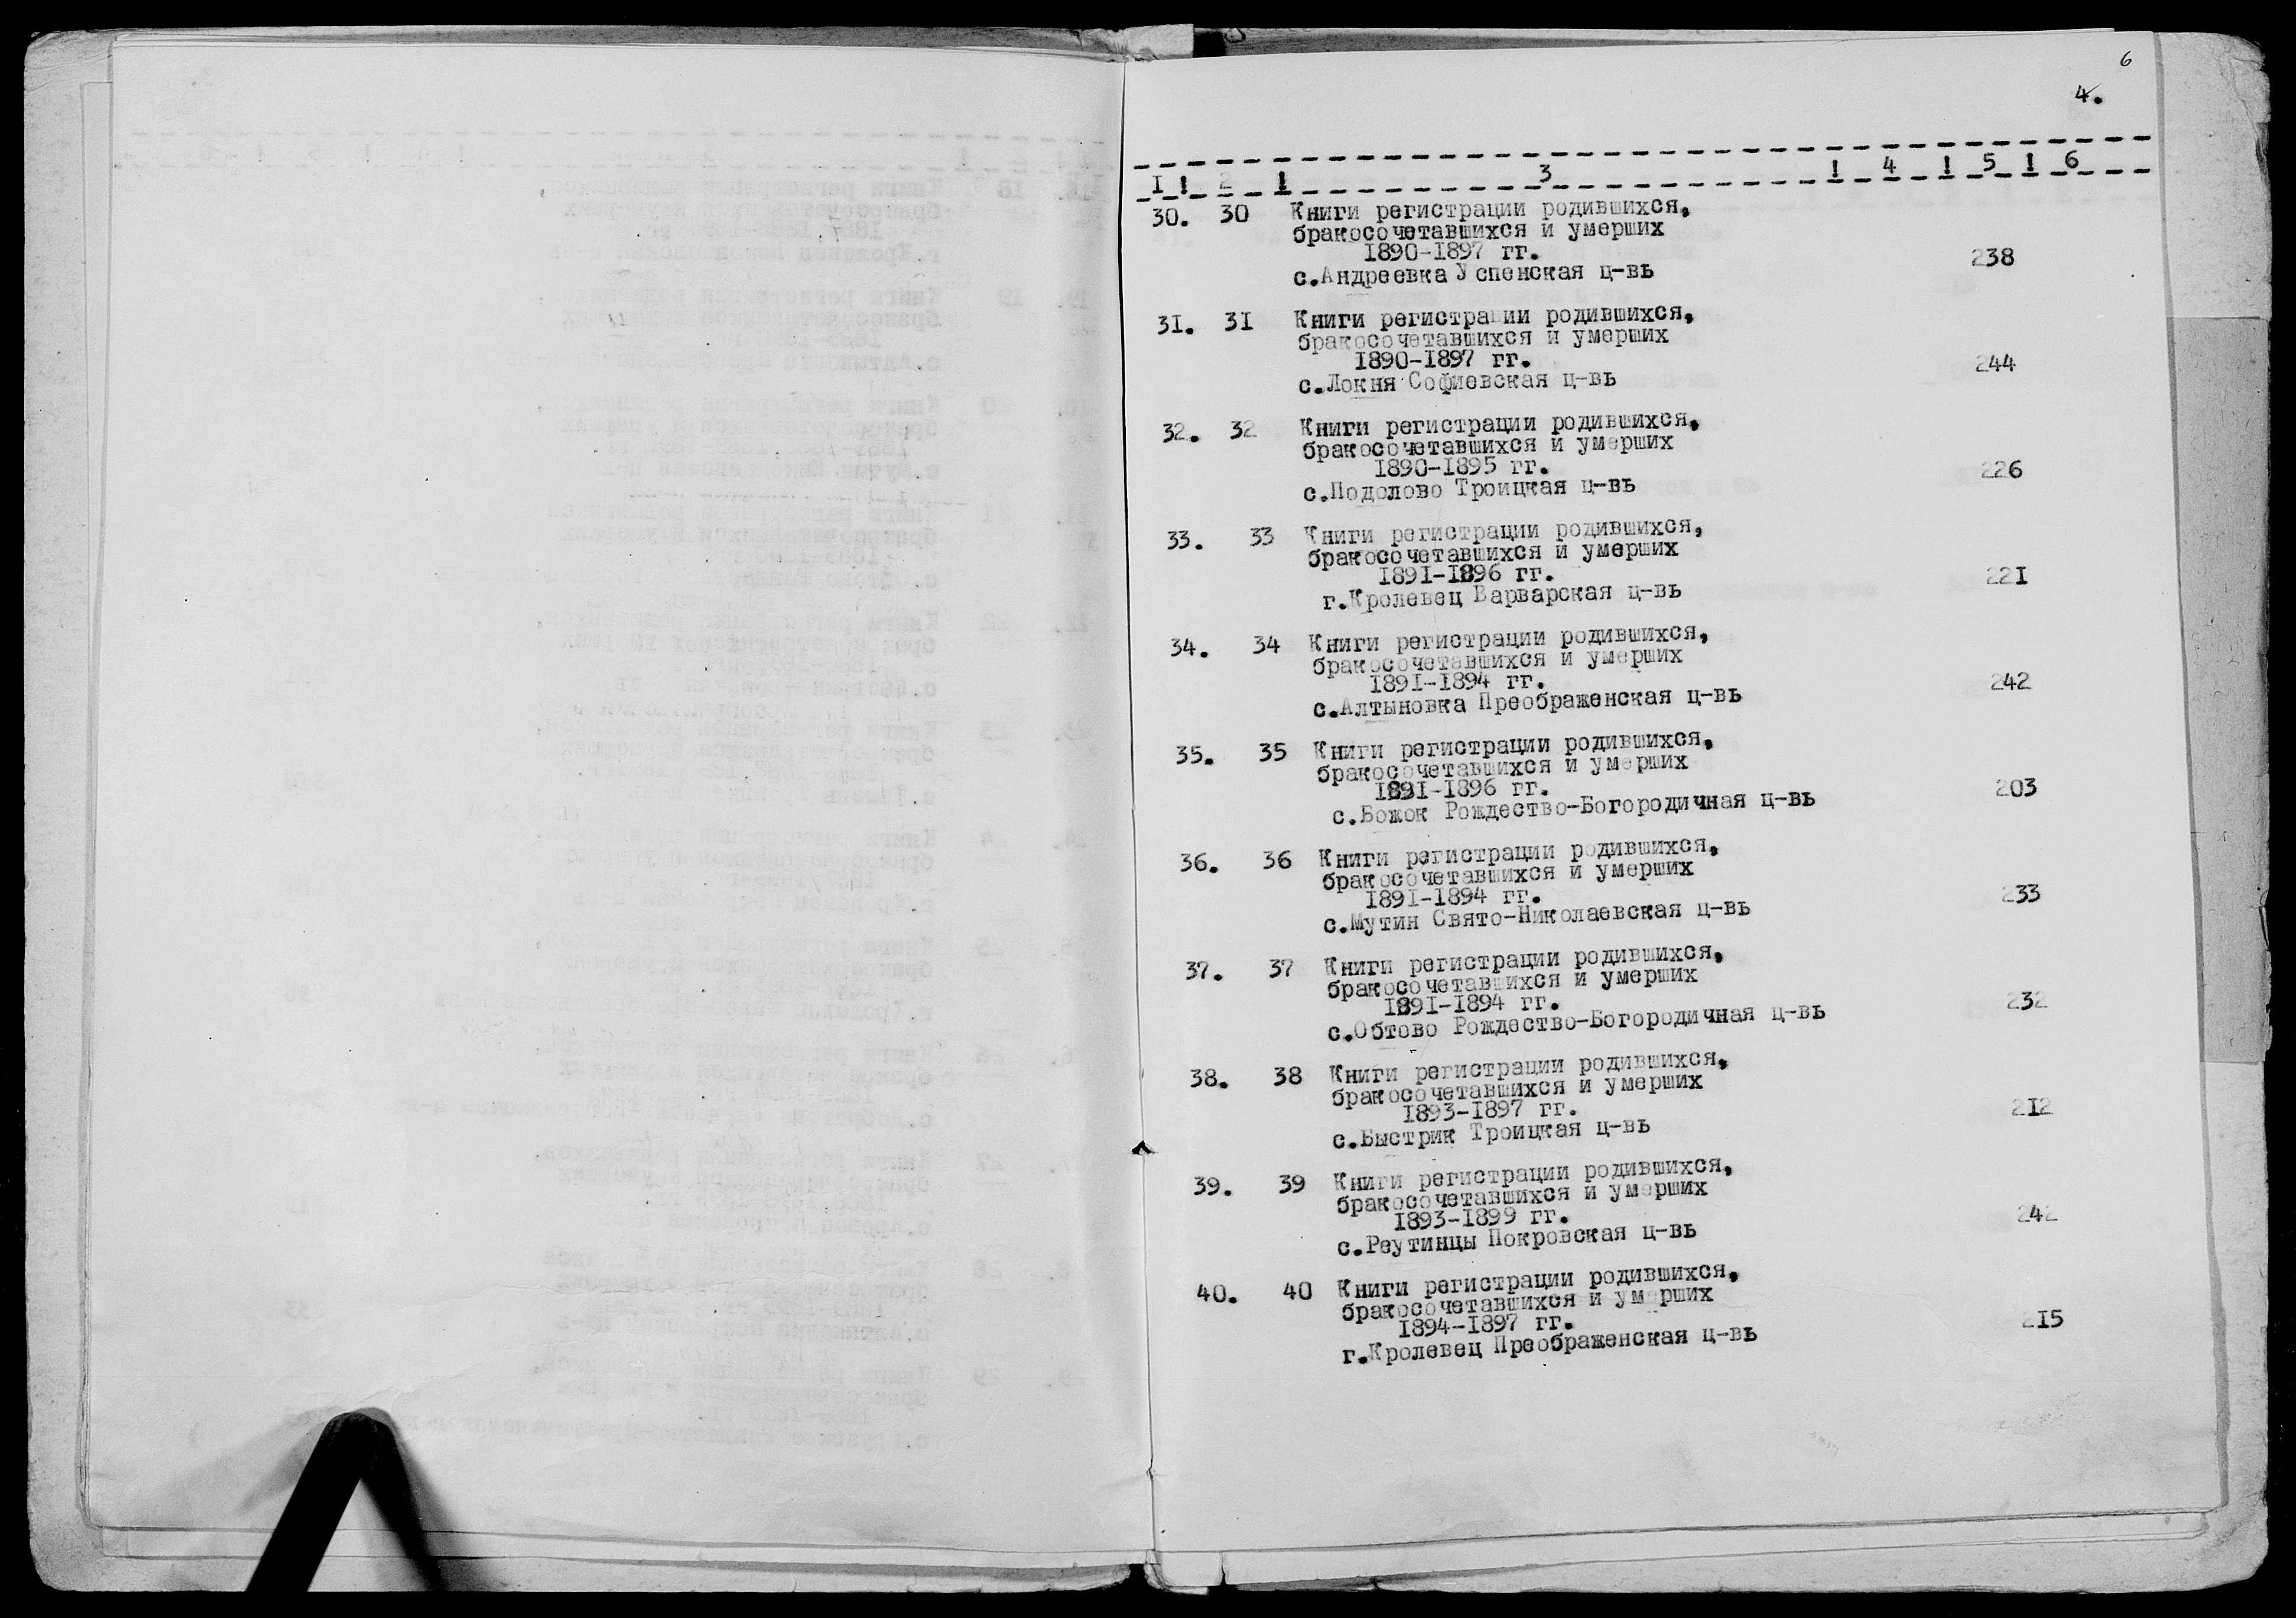 6
4.
I ! 2 ! 3 ! 4 ! 5 ! 6
30. 30 Книги регистрации родившихся,
бракосочетавшихся и умерших
1890-1897 гг. 238
с.Андреевка Успенская ц-вь
31. 31 Книги регистрации родившихся,
бракосочетавшихся и умерших
1890-1897 гг. 244
с.Локня Софиевская ц-вь
32. 32 Книги регистрации родившихся,
бракосочетавшихся и умерших
1890-1895 гг. 226
с.Подолово Троицкая ц-вь
33. 33 Книги регистрации родившихся,
бракосочетавшихся и умерших
1891-1896 гг. 221
г.Кролевец Варварская ц-вь
34. 34 Книги регистрации родившихся,
бракосочетавшихся и умерших
1891-1894 гг. 242
с.Алтыновка Преображенская ц-вь
35. 35 Книги регистрации родившихся,
бракосочетавшихся и умерших
1891-1896 гг. 203
с.Божок Рождество-Богородичная ц-вь
36. 36 Книги регистрации родившихся,
бракосочетавшихся и умерших
1891-1894 гг. 233
с.Мутин Свято-Николаевская ц-вь
37. 37 Книги регистрации родившихся,
бракосочетавшихся и умерших
1891-1894 гг. 232
с.Обтово Рождество-Богородичная ц-вь
38. 38 Книги регистрации родившихся,
бракосочетавшихся и умерших
1893-1897 гг. 212
с.Быстрик Троицкая ц-вь
39. 39 Книги регистрации родившихся,
бракосочетавшихся и умерших
1893-1899 гг. 242
с.Реутинцы Покровская ц-вь
40. 40 Книги регистрации родившихся,
бракосочетавшихся и умерших
1894-1897 гг. 215
г.Кролевец Преображенская ц-вь